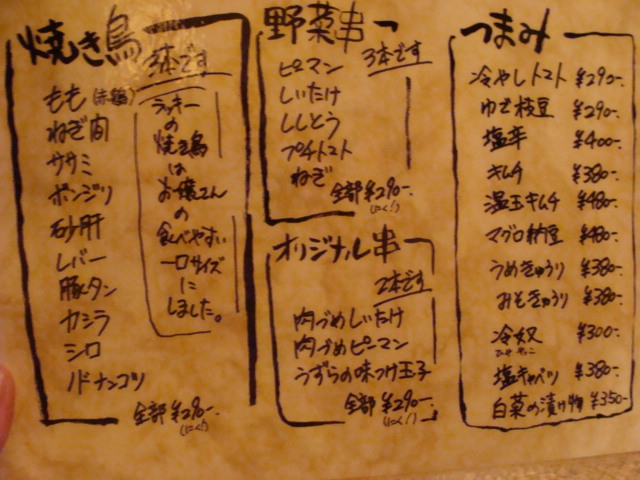 焼き鳥
3本です
もも(赤鶏)
ねぎ間
ササミ
ボンジリ
砂肝
レバー
豚タン
カシラ
シロ
ノドナンコツ
全部¥290-
(にく!)
ラッキー
の
焼き鳥
は
お嬢さん
の
食べやすい
一口サイズ
に
しました。
野菜串
3本です
ピーマン
しいたけ
ししとう
プチトマト
ねぎ
全部¥290-
(にく!)
オリジナル串
2本です
肉づめしいたけ
肉づめピーマン
うずらの味つけ玉子
全部¥290-
(にく!)
つまみ
冷やしトマト ¥290-
ゆで枝豆 ¥290-
塩辛 ¥400-
キムチ ¥380-
温玉キムチ ¥480-
マグロ納豆 ¥480-
うめきゅうり ¥380-
おもきゅうり ¥380-
冷奴 ¥300-
ひややっこ
塩キャベツ ¥380-
白菜の漬け物 ¥350-